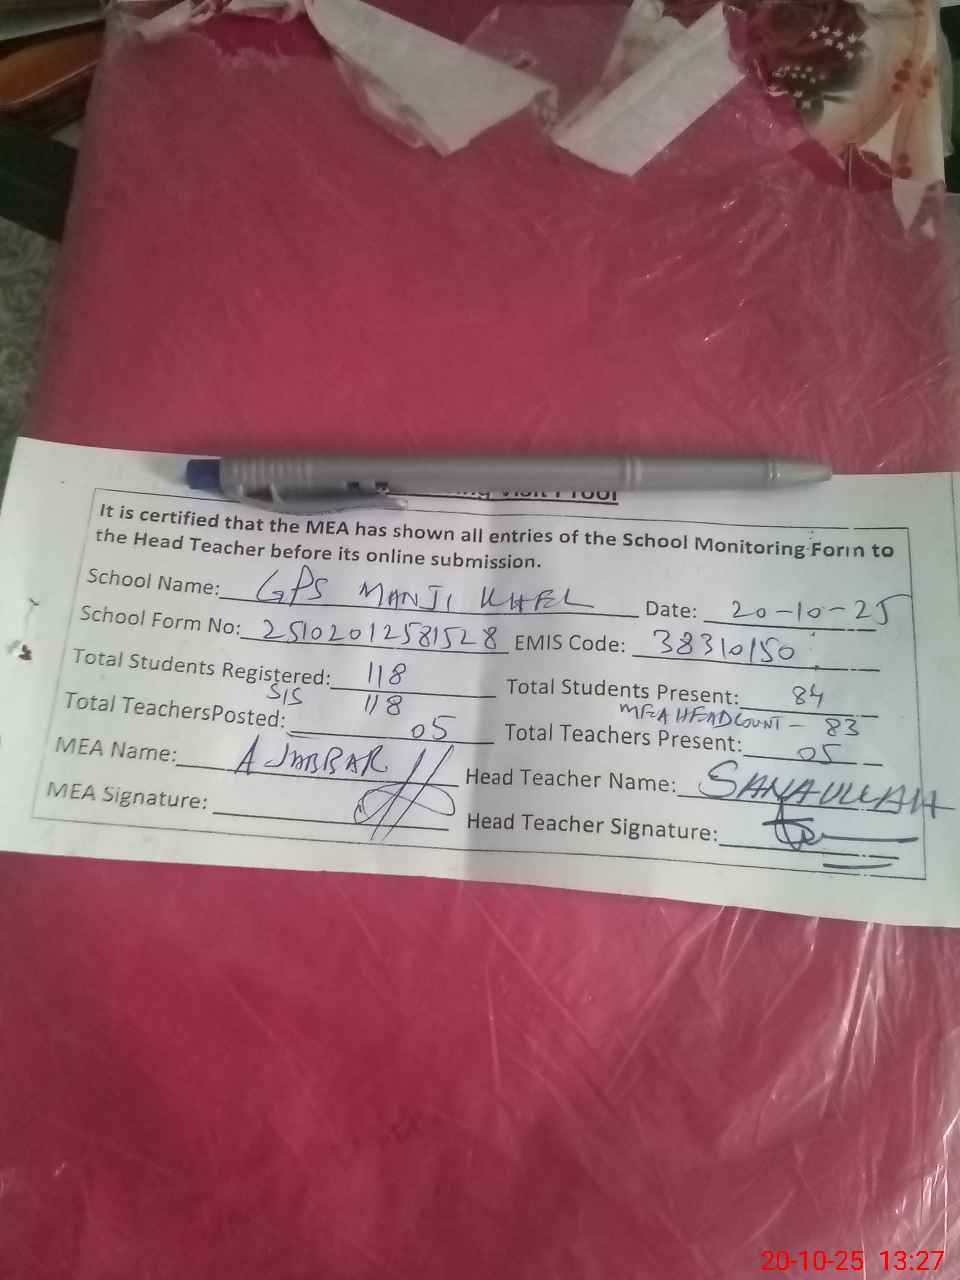 Visit Proof
It is certified that the MEA has shown all entries of the School Monitoring Form to
the Head Teacher before its online submission.
School Name: GPS MANJI KHEL Date: 20-10-25
School Form No: 25102012581528 EMIS Code: 38310150
Total Students Registered: 118 Total Students Present: 84
SIS 118 MEA HEADCOUNT - 83
Total TeachersPosted: 05 Total Teachers Present: 05
MEA Name: A JABBAR Head Teacher Name: SANAULLAH
MEA Signature: Head Teacher Signature:
20-10-25 13:27